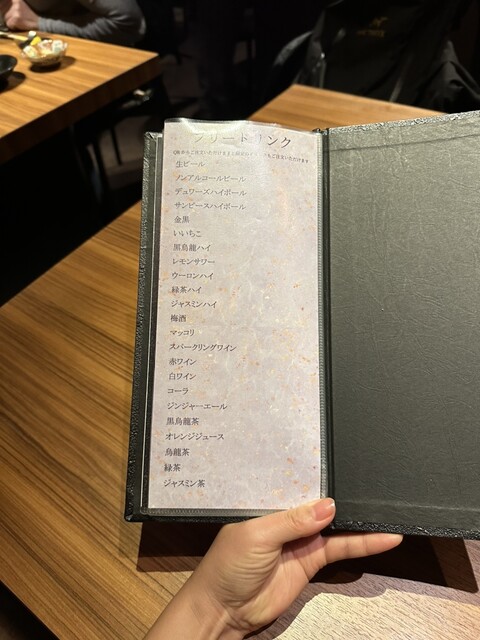 フリードリンク
生ビール
ノンアルコールビール
デュワーズハイボール
サンピースハイボール
金黒
いいちこ
黒烏龍ハイ
レモンサワー
ウーロンハイ
緑茶ハイ
ジャスミンハイ
梅酒
マッコリ
スパークリングワイン
赤ワイン
白ワイン
コーラ
ジンジャーエール
黒烏龍茶
オレンジジュース
烏龍茶
緑茶
ジャスミン茶